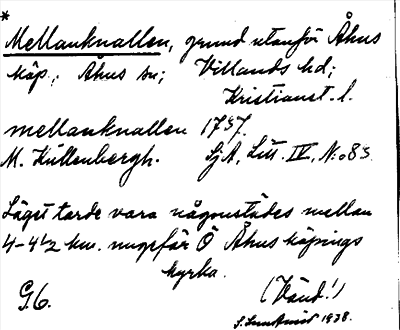 *
Mellanknallen, grund utanför Åhus
köp., Åhus sn; Villands hd;
Kristianst. l.
mellanknallen 1757.
M. Kullenbergh. SjA, Litt. IV, N:o 83.
Läget torde vara någonstädes mellan
4-4½ km. ungefär Ö Åhus köpings
kyrka.
G.6. (Vänd!)
1938.